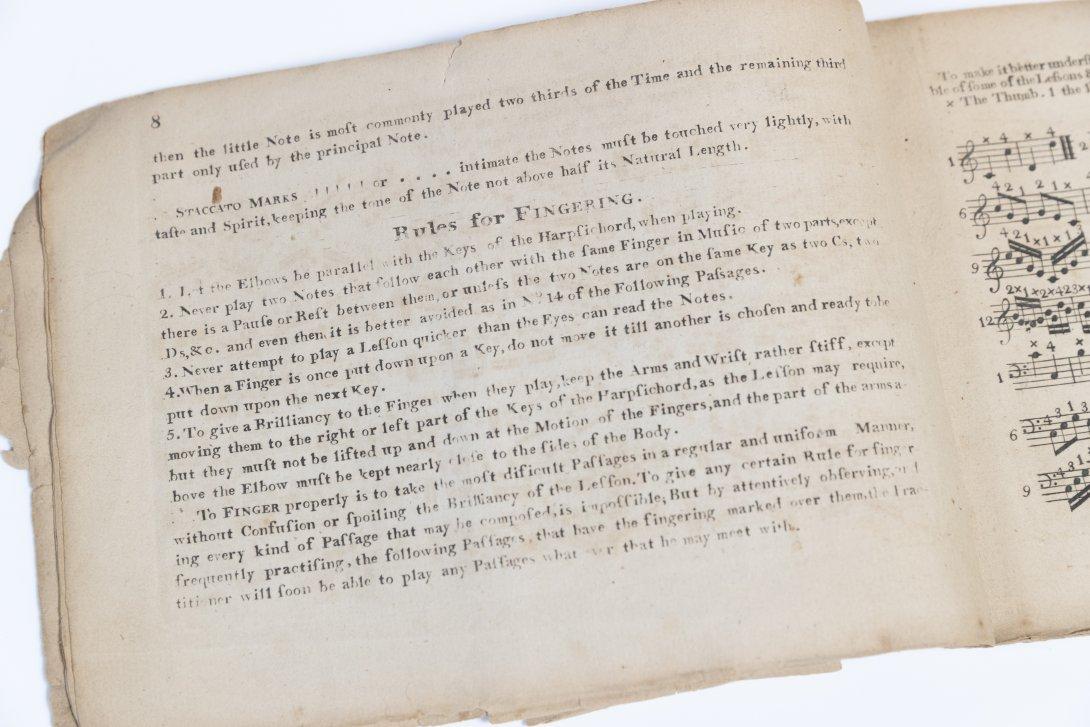 8
then the little Note is moſt commonly played two thirds of the Time and the remaining third
part only uſed by the principal Note.
STACCATO MARKS ' ' ' ' ' ' or . . . . intimate the Notes muſt be touched very lightly, with
taſte and Spirit, keeping the tone of the Note not above half its Natural Length.
Rules for FINGERING.
1. Let the Elbows be parallel with the Keys of the Harpſichord, when playing.
2. Never play two Notes that follow each other with the ſame Finger in Muſic of two parts, except
there is a Pauſe or Reſt between them, or unleſs the two Notes are on the ſame Key as two Cs, two
Ds, &c. and even then, it is better avoided as in No 14 of the Following Paſsages.
3. Never attempt to play a Leſſon quicker than the Eyes can read the Notes.
4. When a Finger is once put down upon a Key, do not move it till another is choſen and ready to be
put down upon the next Key.
5. To give a Brilliancy to the Finger when they play, keep the Arms and Wriſt rather ſtiff, except
moving them to the right or left part of the Keys of the Harpſichord, as the Leſſon may require,
but they muſt not be lifted up and down at the Motion of the Fingers, and the part of the arms a-
bove the Elbow muſt be kept nearly cloſe to the ſides of the Body.
To FINGER properly is to take the moſt dificult Paſſages in a regular and uniform Manner,
without Confuſion or ſpoiling the Brilliancy of the Leſſon. To give any certain Rule for finger
ing every kind of Paſſage that may be compoſed, is impoſſible; But by attentively obſerving, and
frequently practiſing, the following Paſſages, that have the fingering marked over them, the Prac-
titioner will ſoon be able to play any Paſſages what ever that he may meet with.
To make it better underſ
ble of ſome of the Leſsons
× The Thumb. 1 the
1 × 4 × 4 2
6 4 2 1 2 1 ×
9 4 2 1 × 1 × 1
12 2 × 1 × 2 × 4 2 3 ×
1 × 4
6 4 3 1 3
9 4 3 1 3